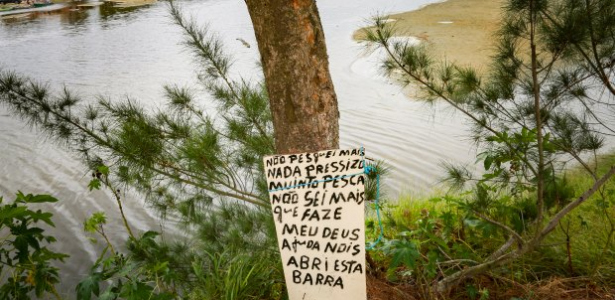 NÃO PESQUEI MAIS
NADA PRESSIZO
MUINTO PESCA
NÃO SEI MAIS
QUE FAZE
MEU DEUS
AJUDA NÓIS
ABRI ESTA
BARRA